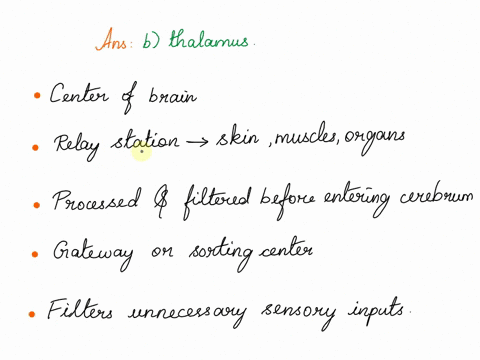 Ans: b) thalamus.
• Center of brain
• Relay station → skin, muscles, organs
• Processed & filtered before entering cerebrum
• Gateway or sorting center
• Filters unnecessary sensory inputs.